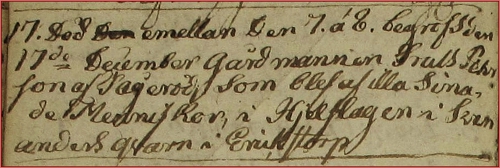 17. Död emellan Den 7. á 8. begrafs den
17de December Gårdmannen Truls Pehr
son af Fageröd, som blef af illa Sina,
de Menniskor, i Hjelslagen i Sven
anders qvarn i Erikstorp